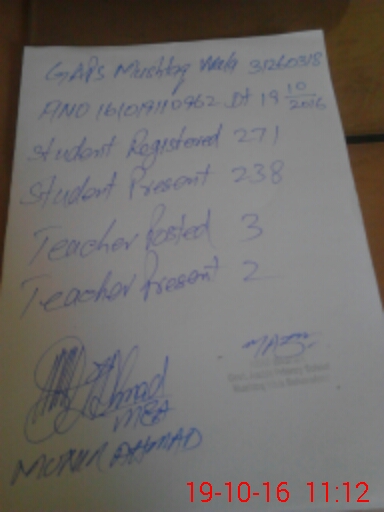 GAPS Mushtaq Wala 31260318
AINO 161019110962 Dt 19 10/2016
Student Registered 271
Student Present 238
Teacher Posted 3
Teacher Present 2
Ahmad
MEA
MUNIR AHMAD
19-10-16 11:12